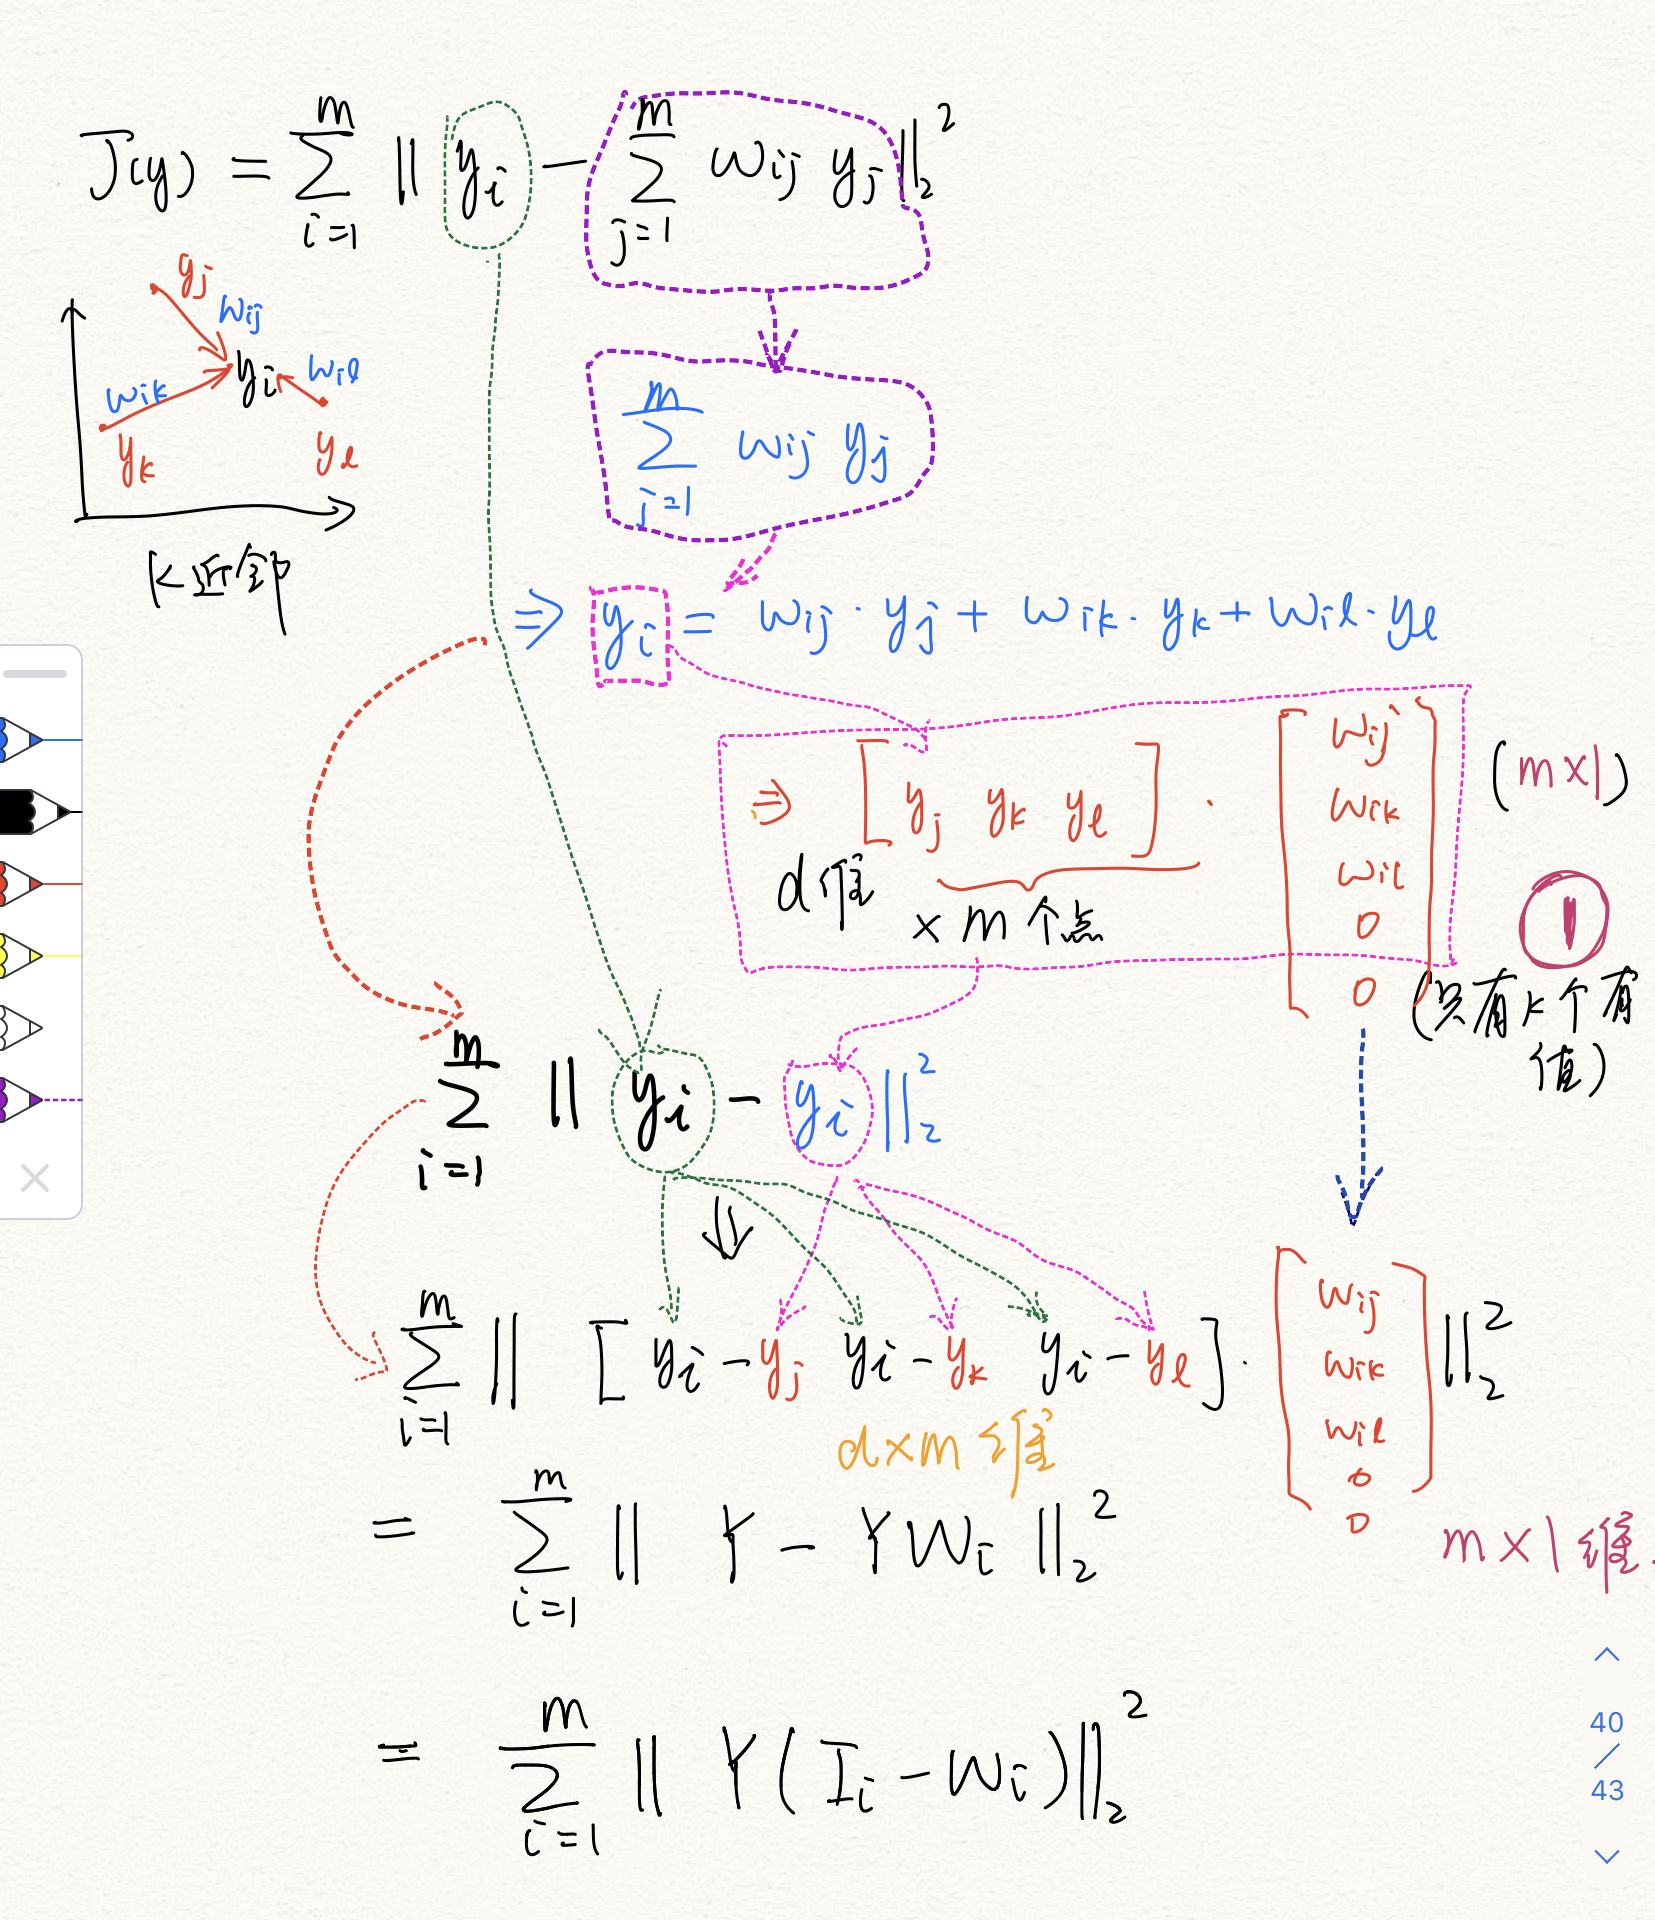 J(y) = ∑_{i=1}^{m} ‖ y_i − ∑_{j=1}^{m} w_ij y_j ‖_2^2
y_j
w_ij
w_ik y_i w_il
y_k y_l
K近邻
∑_{j=1}^{m} w_ij y_j
⇒ y_i = w_ij · y_j + w_ik · y_k + w_il · y_l
⇒ [ y_j y_k y_l ] · [ w_ij w_ik w_il 0 0 ] (m×1)
d维 × m个点
①
(只有k个有
值)
∑_{i=1}^{m} ‖ y_i − y_i ‖_2^2
⇓
∑_{i=1}^{m} ‖ [ y_i − y_j y_i − y_k y_i − y_l ] · [ w_ij w_ik w_il 0 0 ] ‖_2^2
d×m维
m×1维.
= ∑_{i=1}^{m} ‖ Y − YW_i ‖_2^2
= ∑_{i=1}^{m} ‖ Y(I_i − W_i) ‖_2^2
40
/
43